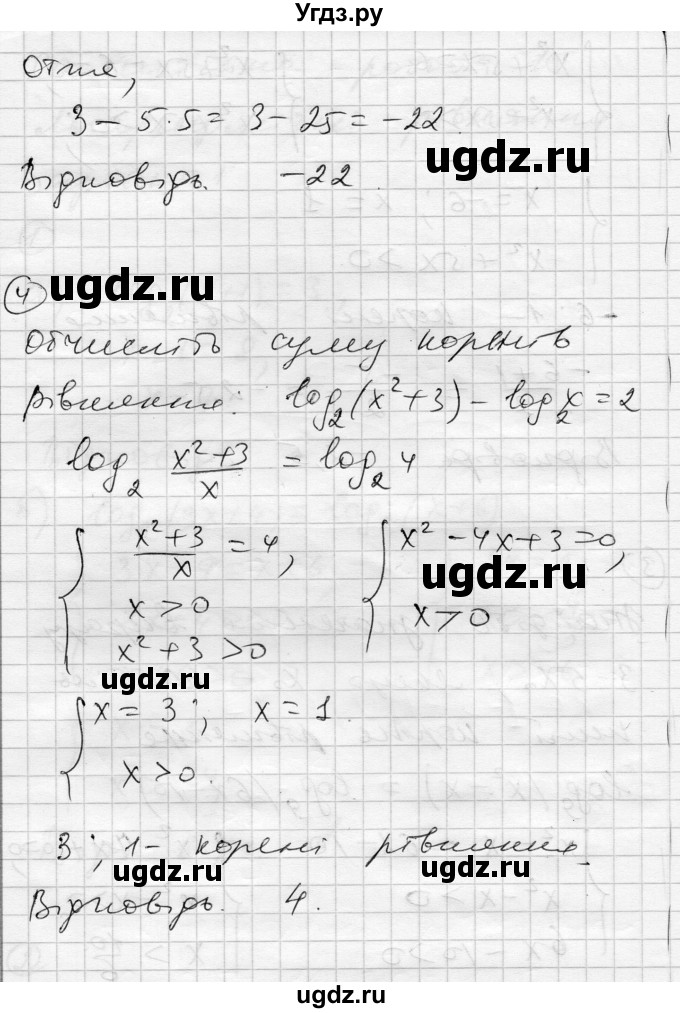 Угдз.ру
Отже,
3 - 5·5 = 3 - 25 = -22.
ugdz.ru
Відповідь. -22.
4 ugdz.ru
Обчисліть суму коренів
рівняння: log₂(x²+3) - log₂x = 2
log₂ (x²+3)/x = log₂4
{ (x²+3)/x = 4, { x² - 4x + 3 = 0,
ugdz.ru
x > 0 x > 0
x² + 3 > 0
ugdz.ru
{ x = 3; x = 1
x > 0.
3; 1 - корені рівняння.
ugdz.ru ugdz.ru
Відповідь. 4.
ugdz.ru